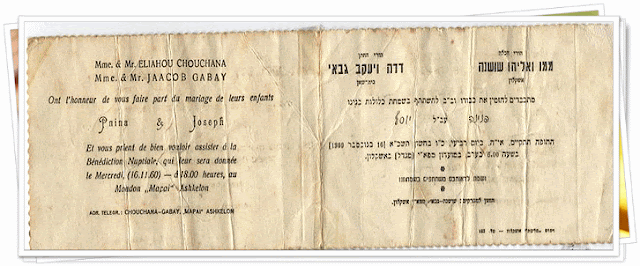 Mme. & Mr. ELIAHOU CHOUCHANA
Mme. & Mr. JAACOB GABAY
Ont l'honneur de vous faire part du mariage de leurs enfants
Pnina & Joseph
Et vous prient de bien vouloir assister à la
Bénédiction Nuptiale, qui leur sera donnée
le Mercredi, (16.11.60) — à 18.00 heures, au
Moadon „Mapai" Ashkelon
ADR. TELEGR.: CHOUCHANA-GABAY, „MAPAI" ASHKELON
הורי הכלה
ממו ואליהו שושנה
אשקלון
הורי החתן
דדה ויעקב גבאי
מתכבדים להזמין את כבודו וב"ב להשתתף בשמחת כלולות בניהם
פנינה עב"ל יוסף
החופה תתקיים, אי"ה, ביום רביעי, כ"ו בחשון תשכ"א (16 בנובמבר 1960)
בשעה 6.00 בערב, במועדון מפא"י (מגדל) באשקלון.
המען למברקים: שושנה-גבאי, מפא"י אשקלון.